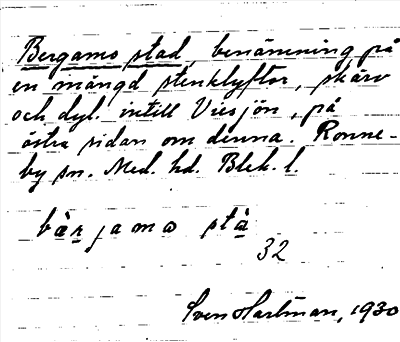 Bergamo stad, benämning på
en mängd stenklyftor, skärv
och dyl. intill Viesjön, på
östra sidan om denna. Ronne-
by sn. Med. hd. Blek. l.
bàrjamo stà
32
Sven Hartman, 1930